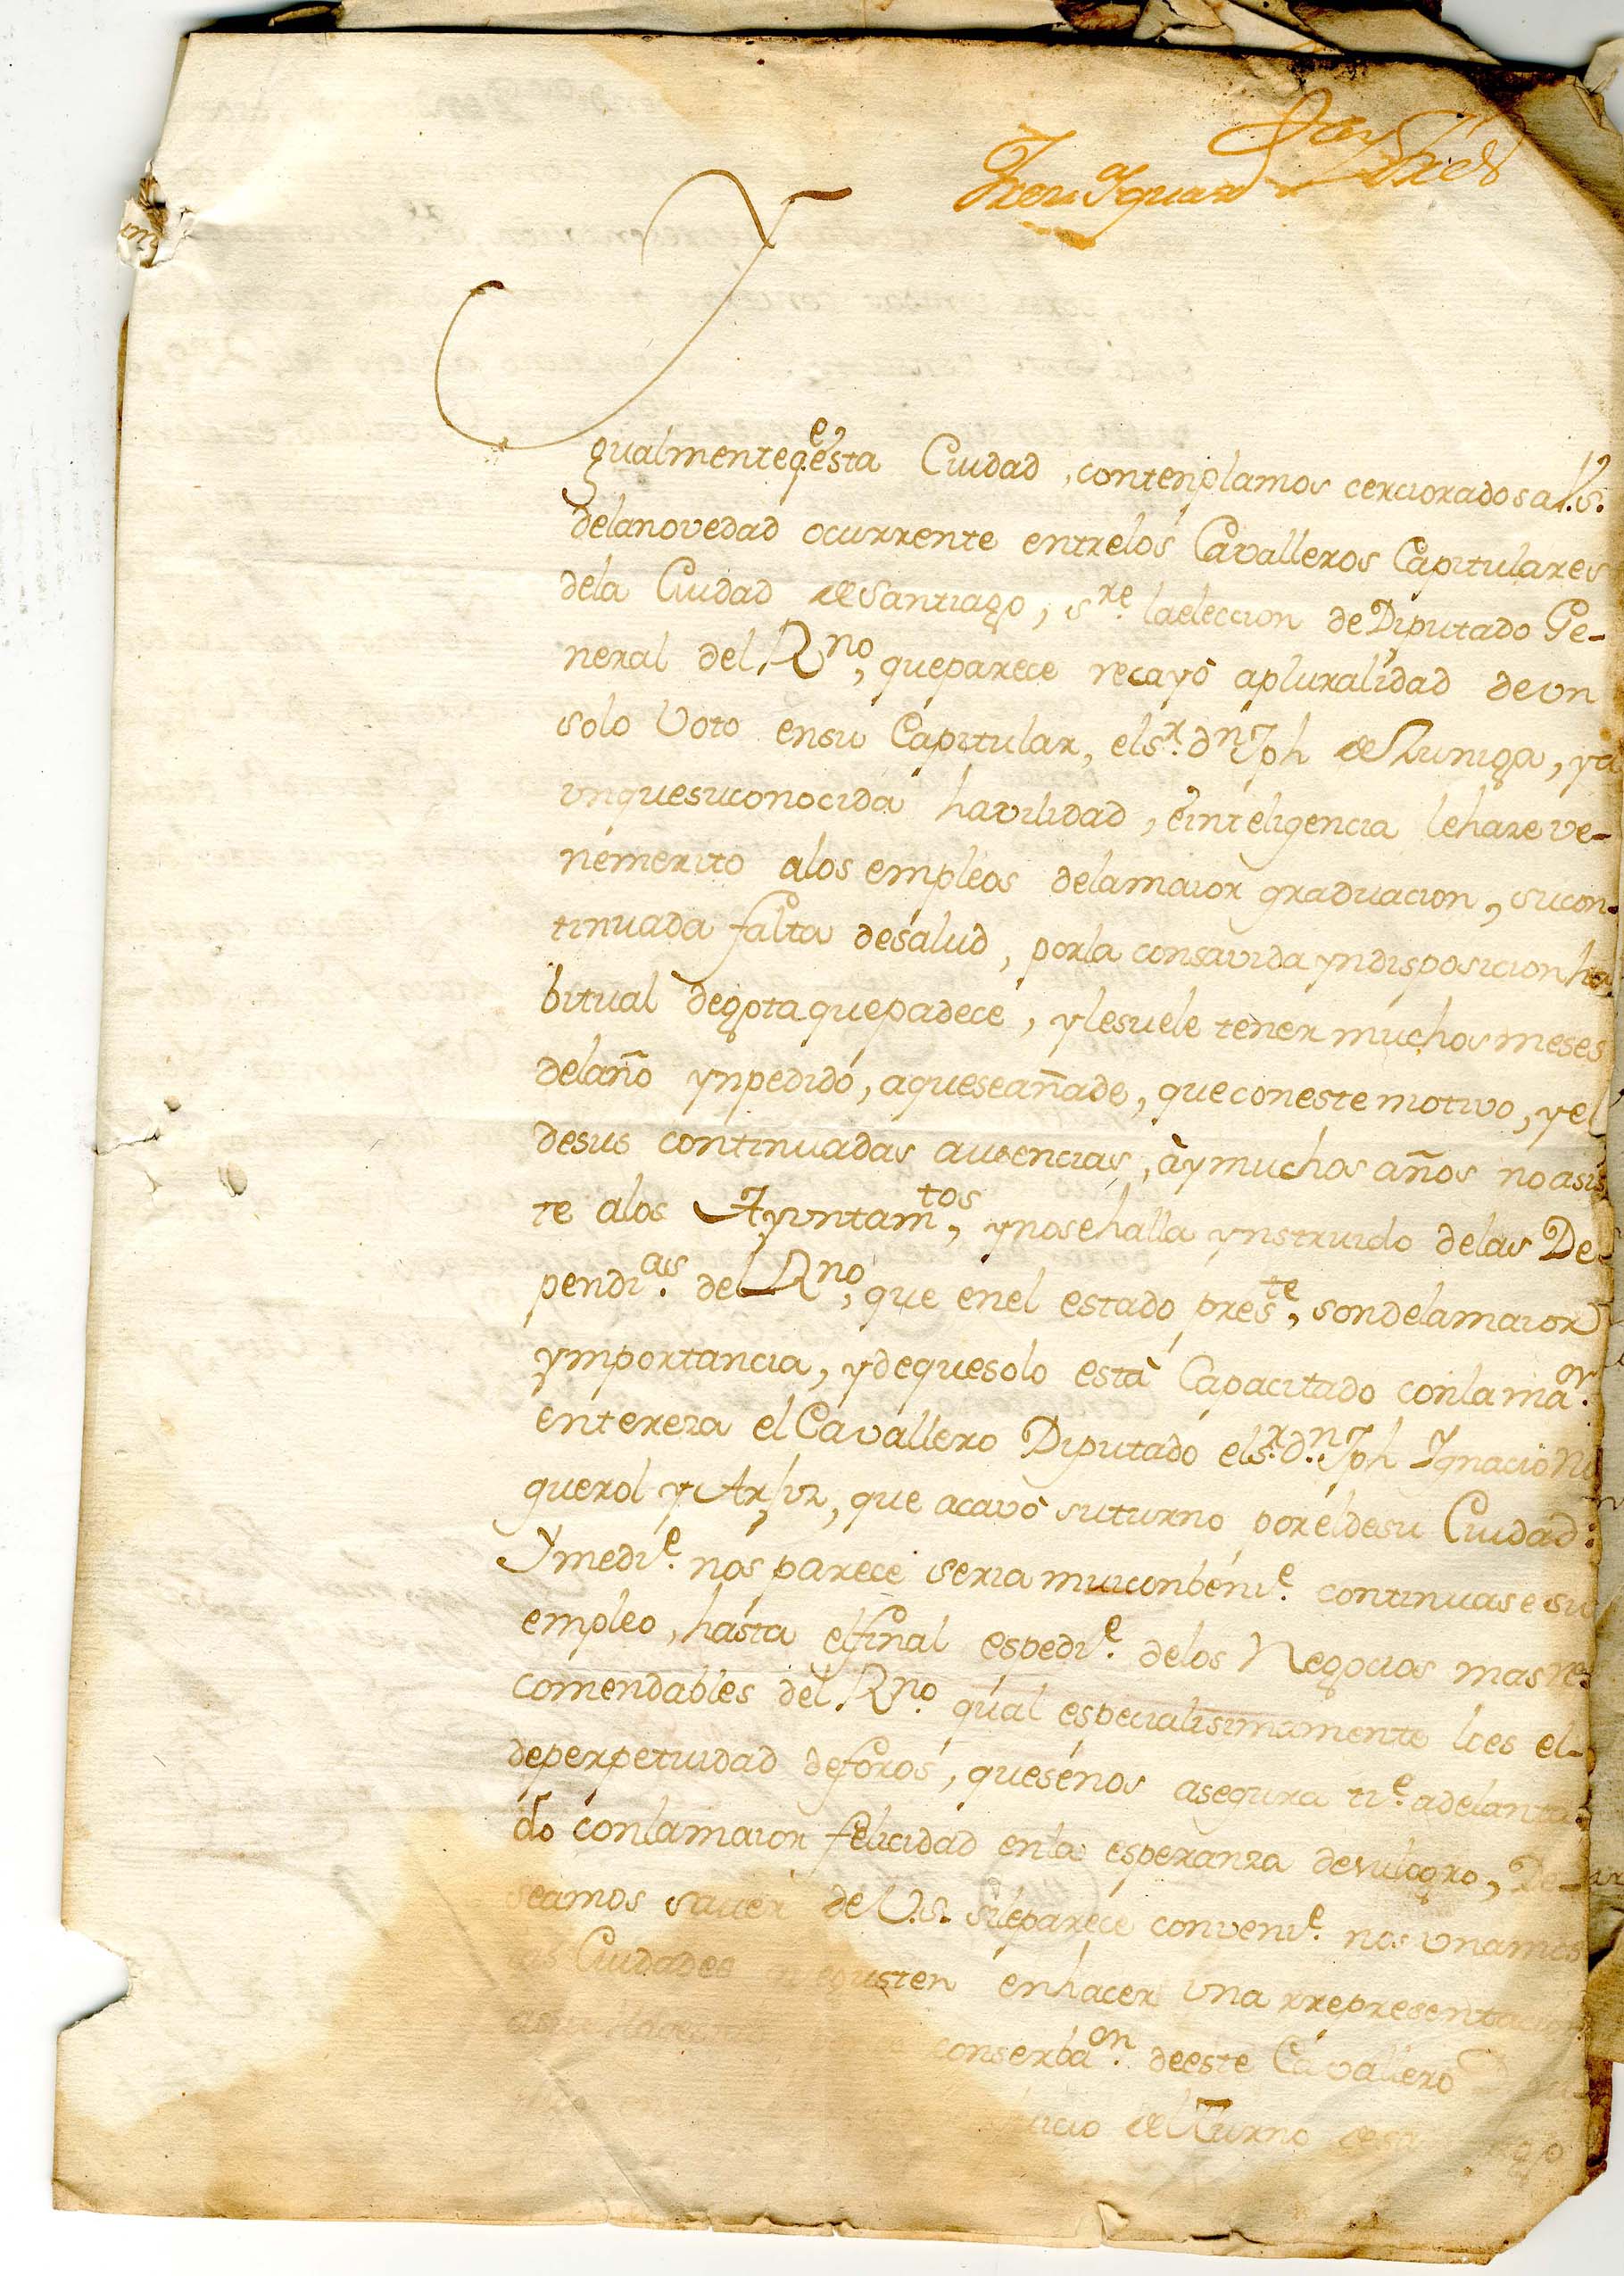 Ygualmente q.e esta Ciudad, contenplamos cerciorados a V.S.
dela novedad ocurrente entrelos Cavalleros Capitulares
dela Ciudad de Santiago, s.re la eleccion de Diputado Ge-
neral del R.no, que parece recayò apluralidad de vn
solo Voto en su Capitular, el s.r d.n Jph de Zuniga, y a
unque su conocida havilidad, è inteligencia le hare ve-
nemerito alos empleos dela maior graduacion, su con-
tinuada falta de salud, por la consavida yndisposicion ha
bitual de gota que padece, y le suele tener muchos meses
del año ynpedido, a que se añade, que con este motivo, y el
de sus continuadas ausencias, ày muchos años no asis
te alos Ayuntam.tos, y no se halla ynstruido delas De
pendi.as del R.no, que en el estado pres.te, son dela maior
ymportancia, y de que solo està Capacitado con la ma.or
entereza el Cavallero Diputado el s.r d.n Jph Ygnacio Ni
guerol y, que acavò su turno por èl de su Ciudad:
Y medi.e nos parece seria mui conbeni.e continuase su
empleo, hasta el final espedi.e delos Negocios mas re-
comendables del R.no qual especialisimamente lo es el
de perpetuidad de foros, que se nos asegura ti.e adelanta-
do con la maior felicidad en la esperanza de su logro, De-
seamos saver de V.S. si le parece conveni.e nos vnamos
Ciudades gusten en hacer vna rrepresentacion
conserba.on de este Cavallero
del Turno